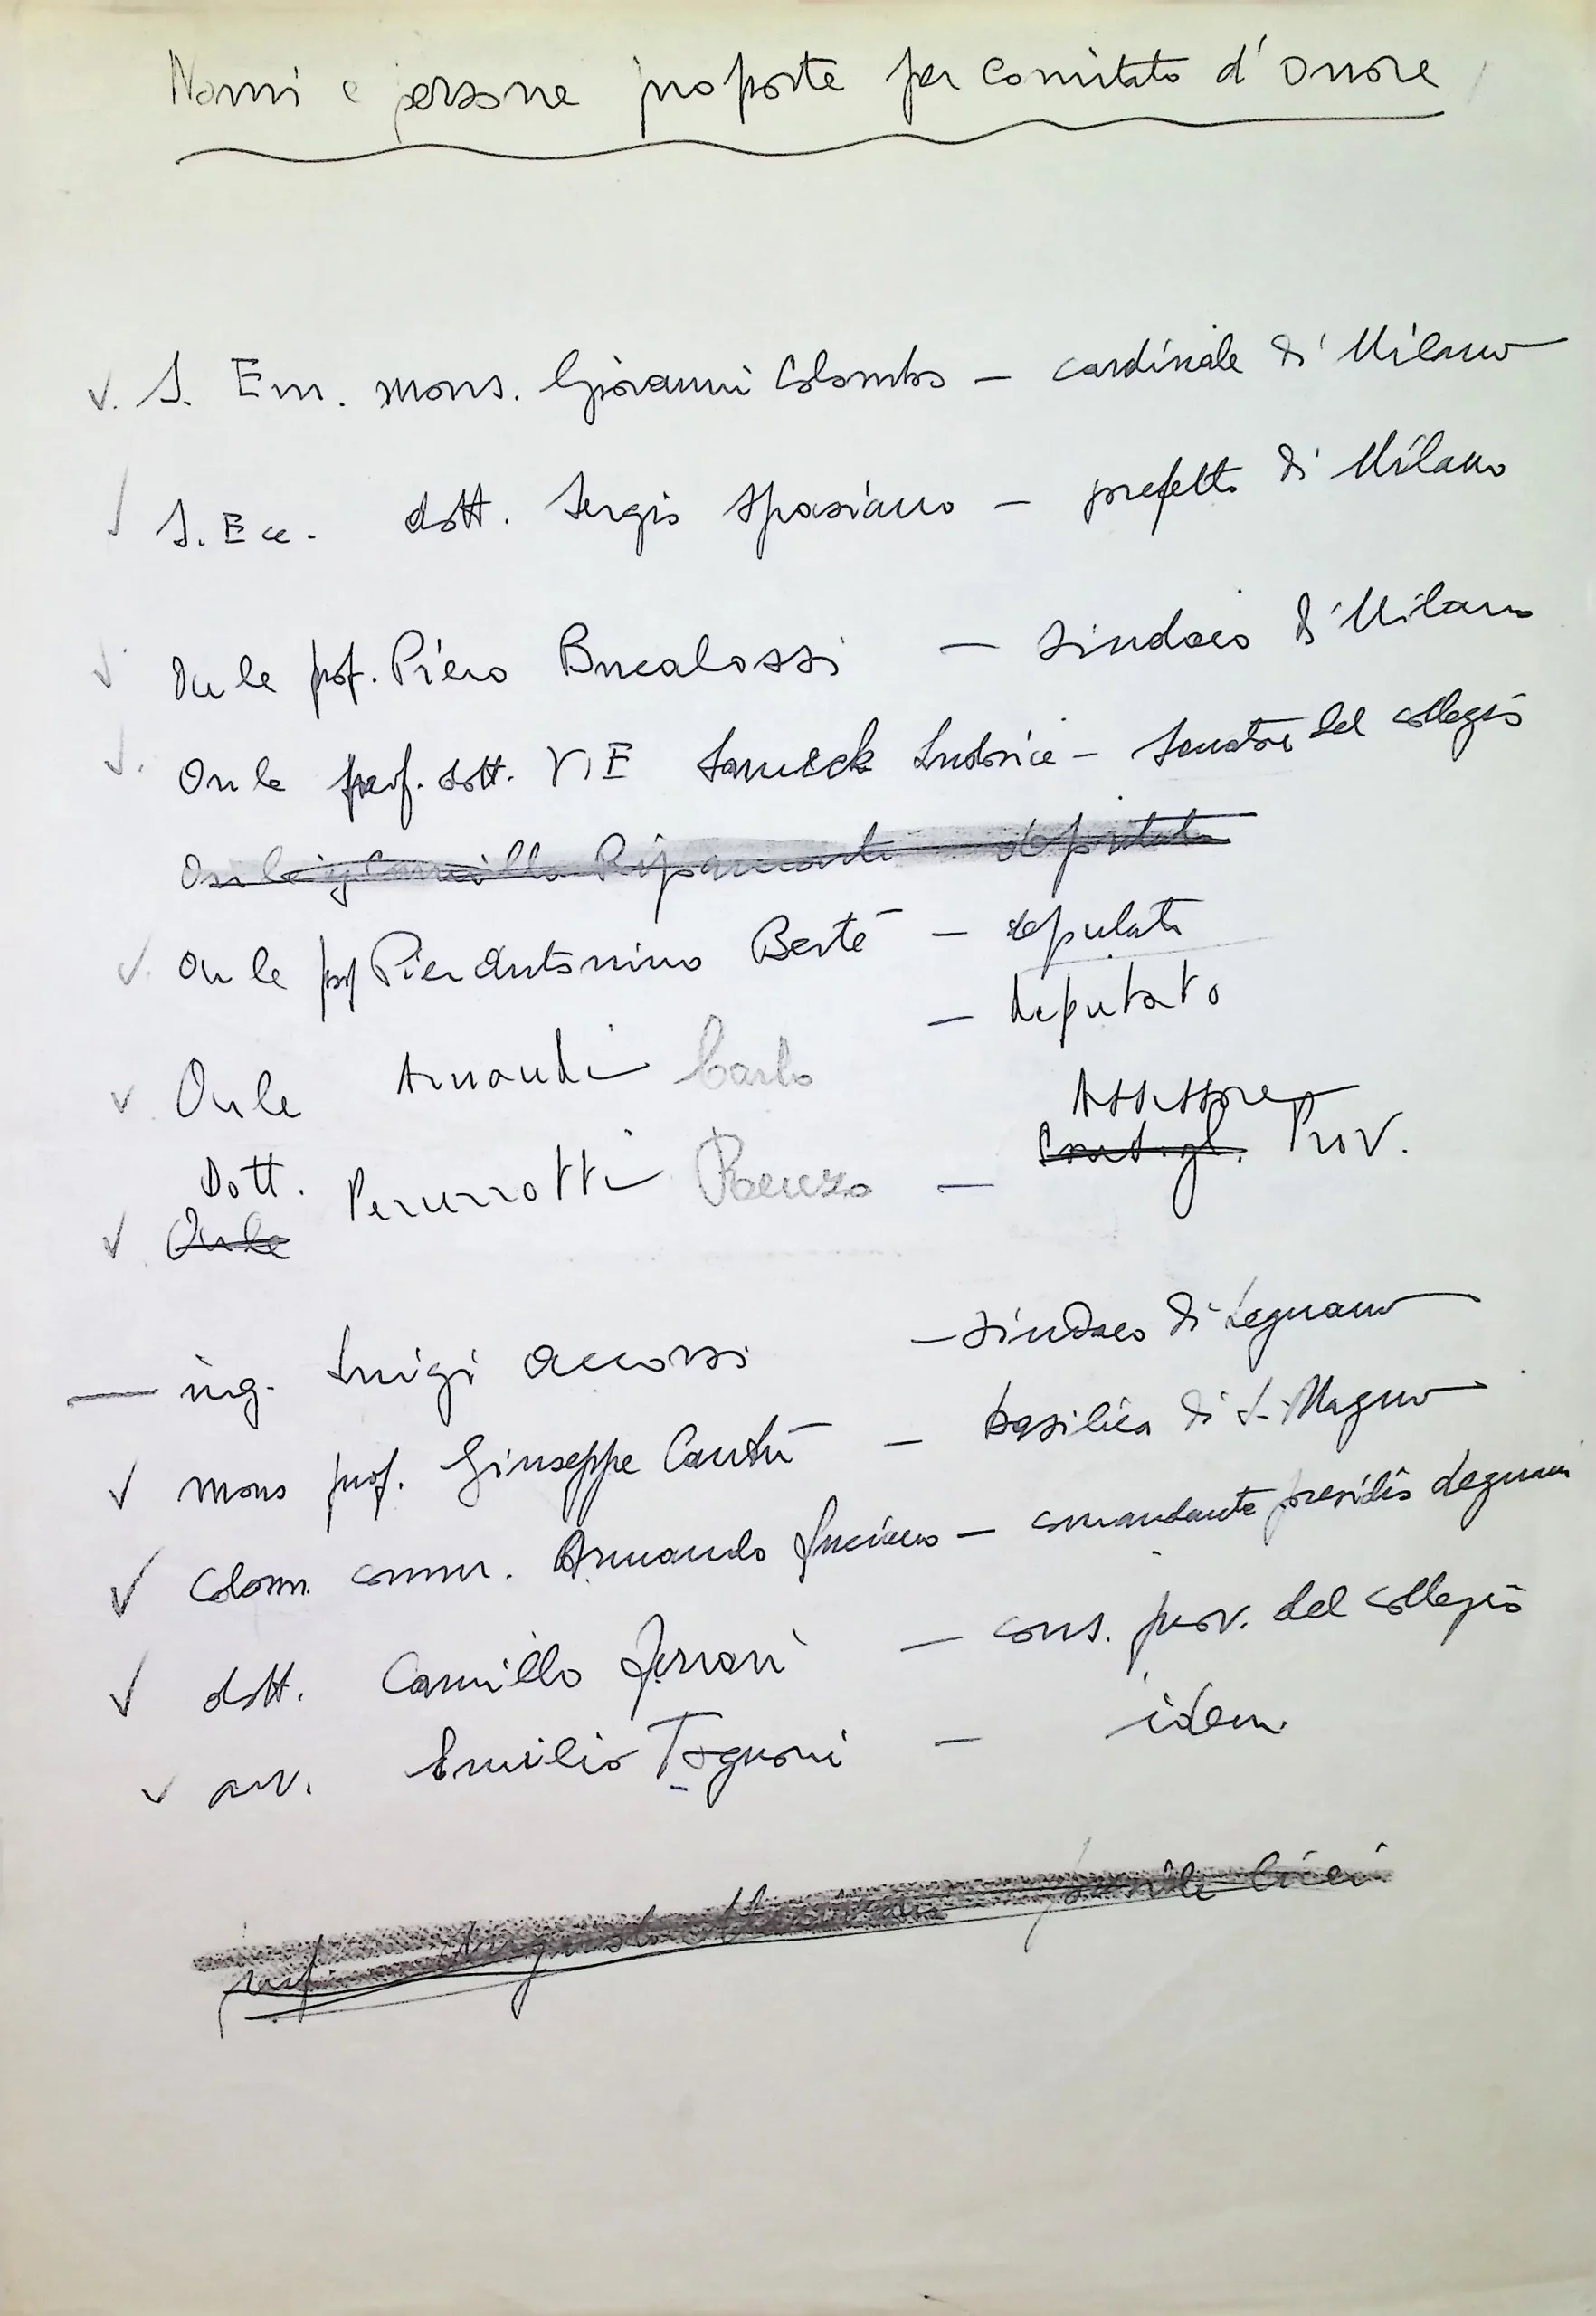 Nomi e persone proposte per comitato d'onore
√. S. Em. mons. Giovanni Colombo — cardinale di Milano
√ S. Ecc. dott. Sergio Spasiano — prefetto di Milano
√ On le prof. Piero Bucalossi — sindaco di Milano
√. On le prof. dott. V E Samek Ludovici — senatore del collegio
On le ig Camillo Ripamonti — deputato
√. On le prof Pier Antonino Berté — deputato
√ On le Amaudi Carlo — deputato
Assessore
Dott. Peruzzotti Renzo — Consigl. Prov.
√ On le
— ing. Luigi Accorsi — sindaco di Legnano
√ mons prof. Giuseppe Cantù — basilica di S. Magno
√ Colonn. comm. Armando Luciano — comandante presidio Legnano
√ dott. Camillo Ferrari — cons. prov. del collegio
√ avv. Emilio Tognoni — idem
prof. Augusto licei